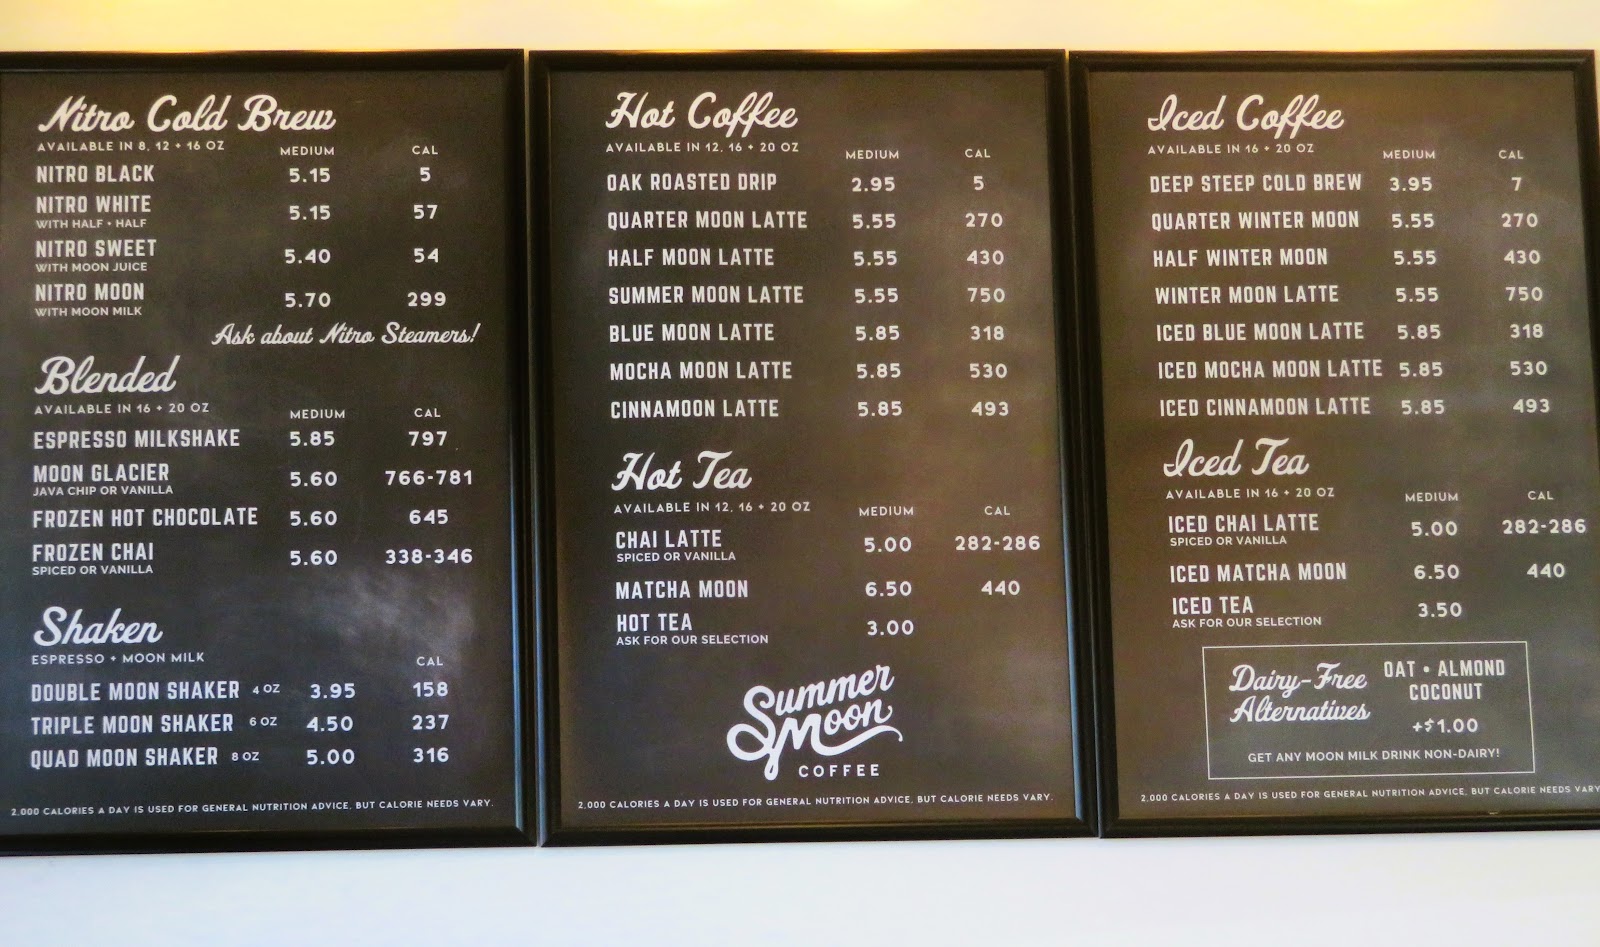 Nitro Cold Brew
AVAILABLE IN 8, 12 + 16 OZ MEDIUM CAL
NITRO BLACK 5.15 5
NITRO WHITE 5.15 57
WITH HALF + HALF
NITRO SWEET 5.40 54
WITH MOON JUICE
NITRO MOON 5.70 299
WITH MOON MILK
Ask about Nitro Steamers!
Blended
AVAILABLE IN 16 + 20 OZ MEDIUM CAL
ESPRESSO MILKSHAKE 5.85 797
MOON GLACIER 5.60 766-781
JAVA CHIP OR VANILLA
FROZEN HOT CHOCOLATE 5.60 645
FROZEN CHAI 5.60 338-346
SPICED OR VANILLA
Shaken
ESPRESSO + MOON MILK CAL
DOUBLE MOON SHAKER 4 OZ 3.95 158
TRIPLE MOON SHAKER 6 OZ 4.50 237
QUAD MOON SHAKER 8 OZ 5.00 316
2,000 CALORIES A DAY IS USED FOR GENERAL NUTRITION ADVICE, BUT CALORIE NEEDS VARY.
Hot Coffee
AVAILABLE IN 12, 16 + 20 OZ MEDIUM CAL
OAK ROASTED DRIP 2.95 5
QUARTER MOON LATTE 5.55 270
HALF MOON LATTE 5.55 430
SUMMER MOON LATTE 5.55 750
BLUE MOON LATTE 5.85 318
MOCHA MOON LATTE 5.85 530
CINNAMOON LATTE 5.85 493
Hot Tea
AVAILABLE IN 12, 16 + 20 OZ MEDIUM CAL
CHAI LATTE 5.00 282-286
SPICED OR VANILLA
MATCHA MOON 6.50 440
HOT TEA 3.00
ASK FOR OUR SELECTION
Summer
Moon
COFFEE
2,000 CALORIES A DAY IS USED FOR GENERAL NUTRITION ADVICE, BUT CALORIE NEEDS VARY.
Iced Coffee
AVAILABLE IN 16 + 20 OZ MEDIUM CAL
DEEP STEEP COLD BREW 3.95 7
QUARTER WINTER MOON 5.55 270
HALF WINTER MOON 5.55 430
WINTER MOON LATTE 5.55 750
ICED BLUE MOON LATTE 5.85 318
ICED MOCHA MOON LATTE 5.85 530
ICED CINNAMOON LATTE 5.85 493
Iced Tea
AVAILABLE IN 16 + 20 OZ MEDIUM CAL
ICED CHAI LATTE 5.00 282-286
SPICED OR VANILLA
ICED MATCHA MOON 6.50 440
ICED TEA 3.50
ASK FOR OUR SELECTION
Dairy-Free
Alternatives
OAT • ALMOND
COCONUT
+$1.00
GET ANY MOON MILK DRINK NON-DAIRY!
2,000 CALORIES A DAY IS USED FOR GENERAL NUTRITION ADVICE, BUT CALORIE NEEDS VARY